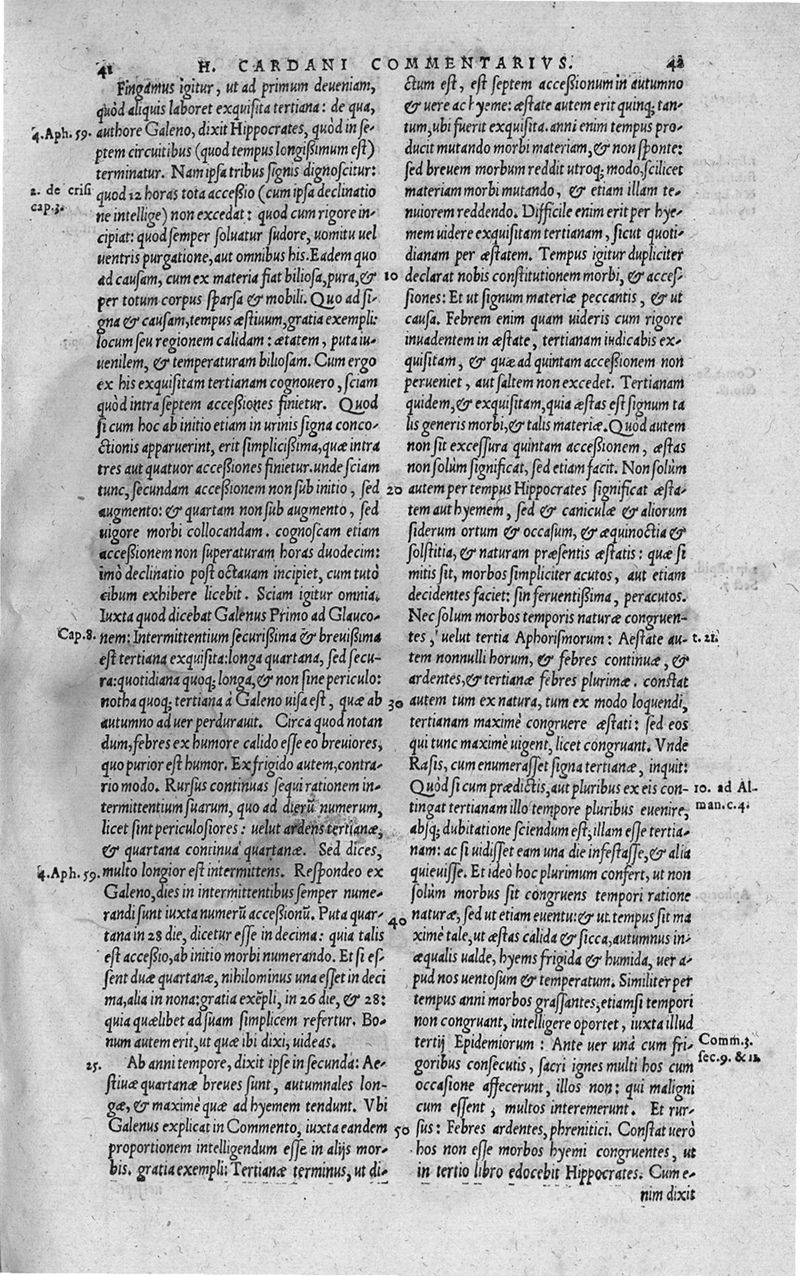 41 H. CARDANI COMMENTARIVS. 42
Fingamus igitur, ut ad primum deueniam,
quòd aliquis laboret exquisita tertiana: de qua,
4. Aph. 59. authore Galeno, dixit Hippocrates, quòd in se-
ptem circuitibus (quod tempus longißimum est)
terminatur. Nam ipsa tribus signis dignoscitur:
2. de crisi quod 12 horas tota acceßio (cum ipsa declinatio
cap. 3. ne intellige) non excedat: quod cum rigore in-
cipiat: quod semper soluatur sudore, uomitu uel
uentris purgatione, aut omnibus his. Eadem quo
ad causam, cum ex materia fiat biliosa, pura, & 10
per totum corpus sparsa & mobili. Quo ad si-
gna & causam, tempus æstiuum, gratia exempli:
locum seu regionem calidam: ætatem, puta iu-
uenilem, & temperaturam biliosam. Cum ergo
ex his exquisitam tertianam cognouero, sciam
quòd intra septem acceßiones finietur. Quod
si cum hoc ab initio etiam in urinis signa conco-
ctionis apparuerint, erit simplicißima, quæ intra
tres aut quatuor acceßiones finietur. unde sciam
tunc, secundam acceßionem non sub initio, sed 20
augmento: & quartam non sub augmento, sed
uigore morbi collocandam. cognoscam etiam
acceßionem non superaturam horas duodecim:
imò declinatio post octauam incipiet, cum tutò
cibum exhibere licebit. Sciam igitur omnia.
Iuxta quod dicebat Galenus Primo ad Glauco-
Cap. 8. nem: Intermittentium securißima & breuißima
est tertiana exquisita: longa quartana, sed secu-
ra: quotidiana quoq; longa, & non sine periculo:
notha quoq; tertiana à Galeno uisa est, quæ ab 30
autumno ad uer perdurauit. Circa quod notan
dum, febres ex humore calido esse eo breuiores,
quo purior est humor. Ex frigido autem, contra-
rio modo. Rursus continuas sequi rationem in-
termittentium suarum, quo ad dierū numerum,
licet sint periculosiores: uelut ardens tertianæ,
& quartana continua quartanæ. Sed dices,
4. Aph. 59. multo longior est intermittens. Respondeo ex
Galeno, dies in intermittentibus semper nume-
randi sunt iuxta numerū acceßionū. Puta quar- 40
tana in 28 die, dicetur esse in decima: quia talis
est acceßio, ab initio morbi numerando. Et si es-
sent duæ quartanæ, nihilominus una esset in deci
ma, alia in nona: gratia exēpli, in 26 die, & 28:
quia quælibet ad suam simplicem refertur. Bo-
num autem erit, ut quæ ibi dixi, uideas.
25. Ab anni tempore, dixit ipse in secunda: Ae-
stiuæ quartanæ breues sunt, autumnales lon-
gæ, & maximè quæ ad hyemem tendunt. Vbi
Galenus explicat in Commento, iuxta eandem 50
proportionem intelligendum esse in alijs mor-
bis. gratia exempli: Tertianæ terminus, ut di-
ctum est, est septem acceßionum in autumno
& uere ac hyeme: æstate autem erit quinq; tan-
tum, ubi fuerit exquisita. anni enim tempus pro-
ducit mutando morbi materiam, & non sponte:
sed breuem morbum reddit utroq; modo, scilicet
materiam morbi mutando, & etiam illam te-
nuiorem reddendo. Difficile enim erit per hye-
mem uidere exquisitam tertianam, sicut quoti-
dianam per æstatem. Tempus igitur dupliciter
declarat nobis constitutionem morbi, & acces-
siones: Et ut signum materiæ peccantis, & ut
causa. Febrem enim quam uideris cum rigore
inuadentem in æstate, tertianam indicabis ex-
quisitam, & quæ ad quintam acceßionem non
perueniet, aut saltem non excedet. Tertianam
quidem, & exquisitam, quia æstas est signum ta
lis generis morbi, & talis materiæ. Quòd autem
non sit excessura quintam acceßionem, æstas
non solùm significat, sed etiam facit. Non solùm
autem per tempus Hippocrates significat æsta-
tem aut hyemem, sed & caniculæ & aliorum
siderum ortum & occasum, & æquinoctia &
solstitia, & naturam præsentis æstatis: quæ si
mitis sit, morbos simpliciter acutos, aut etiam
decidentes faciet: sin feruentißima, peracutos.
Nec solum morbos temporis naturæ congruen-
tes, uelut tertia Aphorismorum: Aestate au- t. 21.
tem nonnulli horum, & febres continuæ, &
ardentes, & tertianæ febres plurimæ. constat
autem tum ex natura, tum ex modo loquendi,
tertianam maximè congruere æstati: sed eos
qui tunc maximè uigent, licet congruant. Vnde
Rasis, cum enumerasset signa tertianæ, inquit:
Quòd si cum prædictis, aut pluribus ex eis con- 10. ad Al-
tingat tertianam illo tempore pluribus euenire, man. c. 4.
absq; dubitatione sciendum est, illam esse tertia-
nam: ac si uidisset eam una die infestasse, & alia
quieuisse. Et ideò hoc plurimum confert, ut non
solùm morbus sit congruens tempori ratione
naturæ, sed ut etiam euentu: & ut tempus sit ma
ximè tale, ut æstas calida & sicca, autumnus in-
æqualis ualde, hyems frigida & humida, uer a-
pud nos uentosum & temperatum. Similiter per
tempus anni morbos grassantes, etiamsi tempori
non congruant, intelligere oportet, iuxta illud
tertij Epidemiorum: Ante uer unà cum fri- Comm. 3.
goribus consecutis, sacri ignes multi hos cum sec. 9. & 12.
occasione affecerunt, illos non: qui maligni
cum essent, multos interemerunt. Et rur-
sus: Febres ardentes, phrenitici. Constat uerò
hos non esse morbos hyemi congruentes, ut
in tertio libro edocebit Hippocrates. Cum e-
nim dixit